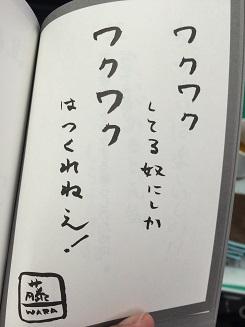 ワクワク
してる奴にしか
ワクワク
はつくれねえ!
藤
WARA